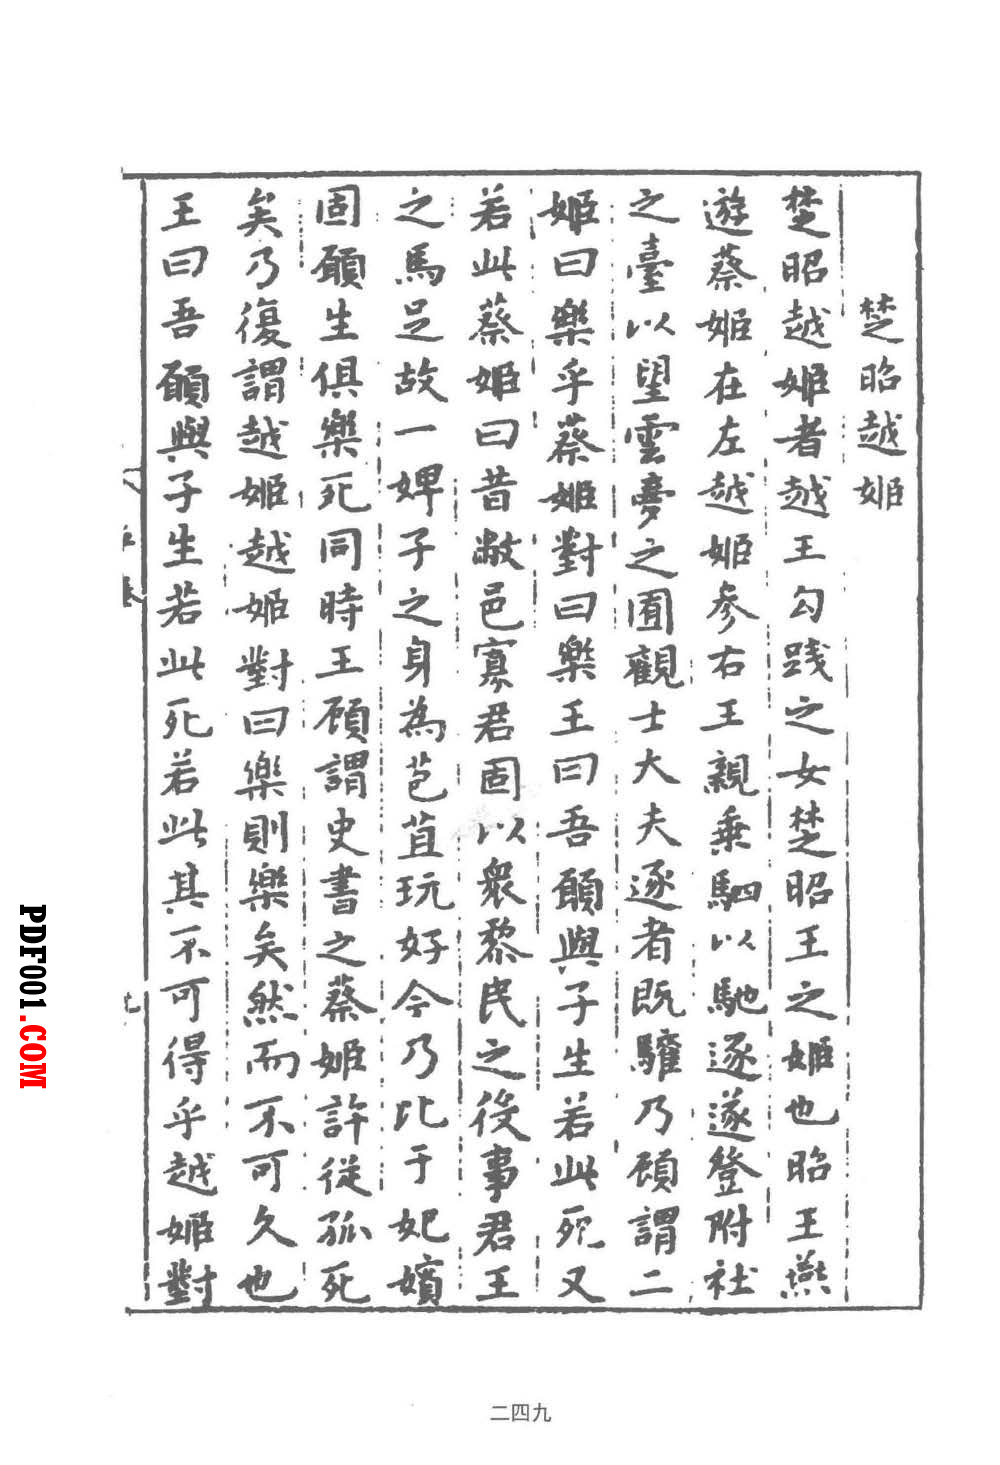 楚昭越姬
楚昭越姬者越王勾踐之女楚昭王之姬也昭王燕
遊蔡姬在左越姬參右王親乗駟以馳逐遂登附社
之臺以望雲夢之囿觀士大夫逐者既驩乃顧謂二
姬曰樂乎蔡姬對曰樂王曰吾願與子生若此死又
若此蔡姬曰昔敝邑寡君固以衆黎民之役事君王
之馬足故一婢子之身為苞苴玩好今乃比于妃嬪
固願生俱樂死同時王顧謂史書之蔡姬許従孤死
矣乃復謂越姬越姬對曰樂則樂矣然而不可久也
王曰吾願與子生若此死若此其不可得乎越姬對
二四九
PDF001.COM